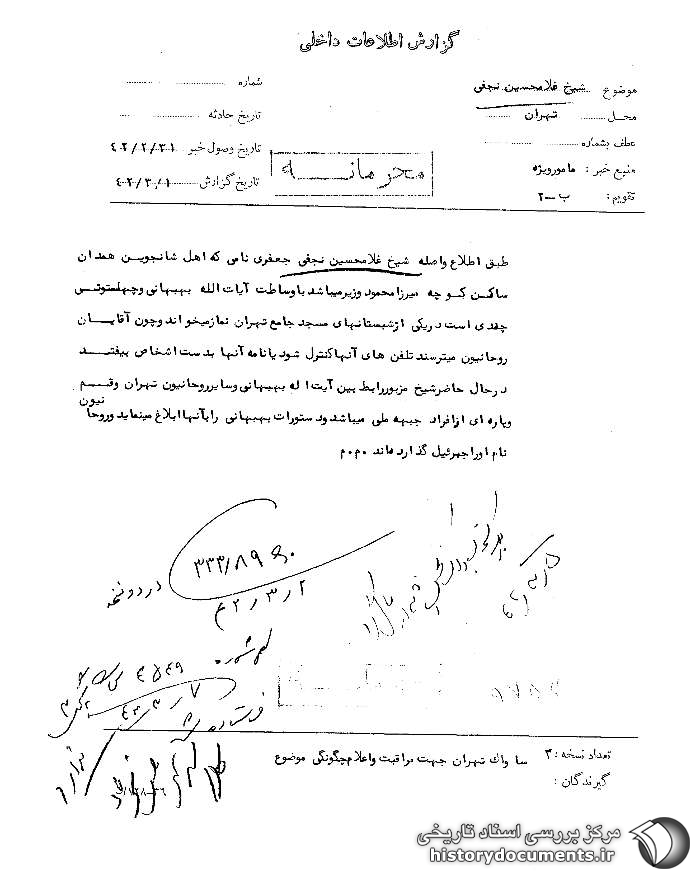 گزارش اطلاعات داخلی
موضوع شیخ غلامحسین نجفی
محل تهران
عطف بشماره
منبع خبر : مامورویژه
تقویم : ب-۲
شماره
تاریخ حادثه
تاریخ وصول خبر ۴۲/۲/۳۱
تاریخ گزارش ۴۲/۳/۱
محرمانه
طبق اطلاع واصله شیخ غلامحسین نجفی جعفری نامی که اهل شانجوین همدان
ساکن کوچه میرزامحمود وزیرمیباشد با وساطت آیات الله بهبهانی وچهلستونی
چندی است دریکی ازشبستانهای مسجد جامع تهران نمازمیخواند وچون آقایان
روحانیون میترسند تلفن های آنهاکنترل شود یانامه آنها بدست اشخاص بیفتد
درحال حاضرشیخ مزبوررابط بین آیت اله بهبهانی وسایرروحانیون تهران وقم
وپاره ای ازافراد جبهه ملی میباشد ودستورات بهبهانی رابآنهاابلاغ مینماید وروحانیون
نام اوراجبرئیل گذارده‌اند م۰م
۳۳۳/۸۹
۴۲/۳/۲
در دو نسخه
تعداد نسخه : ۳
گیرندگان :
ساواك تهران جهت مراقبت واعلام چگونگی موضوع
مرکز بررسی اسناد تاریخی
historydocuments.ir